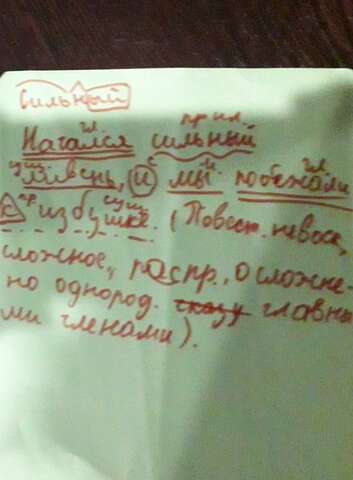 сильный
гл прил.
Начался сильный
сущ с м гл
ливень, и мы побежали
пр сущ
к избушке. (Повест. невоск,
сложное, распр., осложне-
но однород. сказу главны
ми членами).